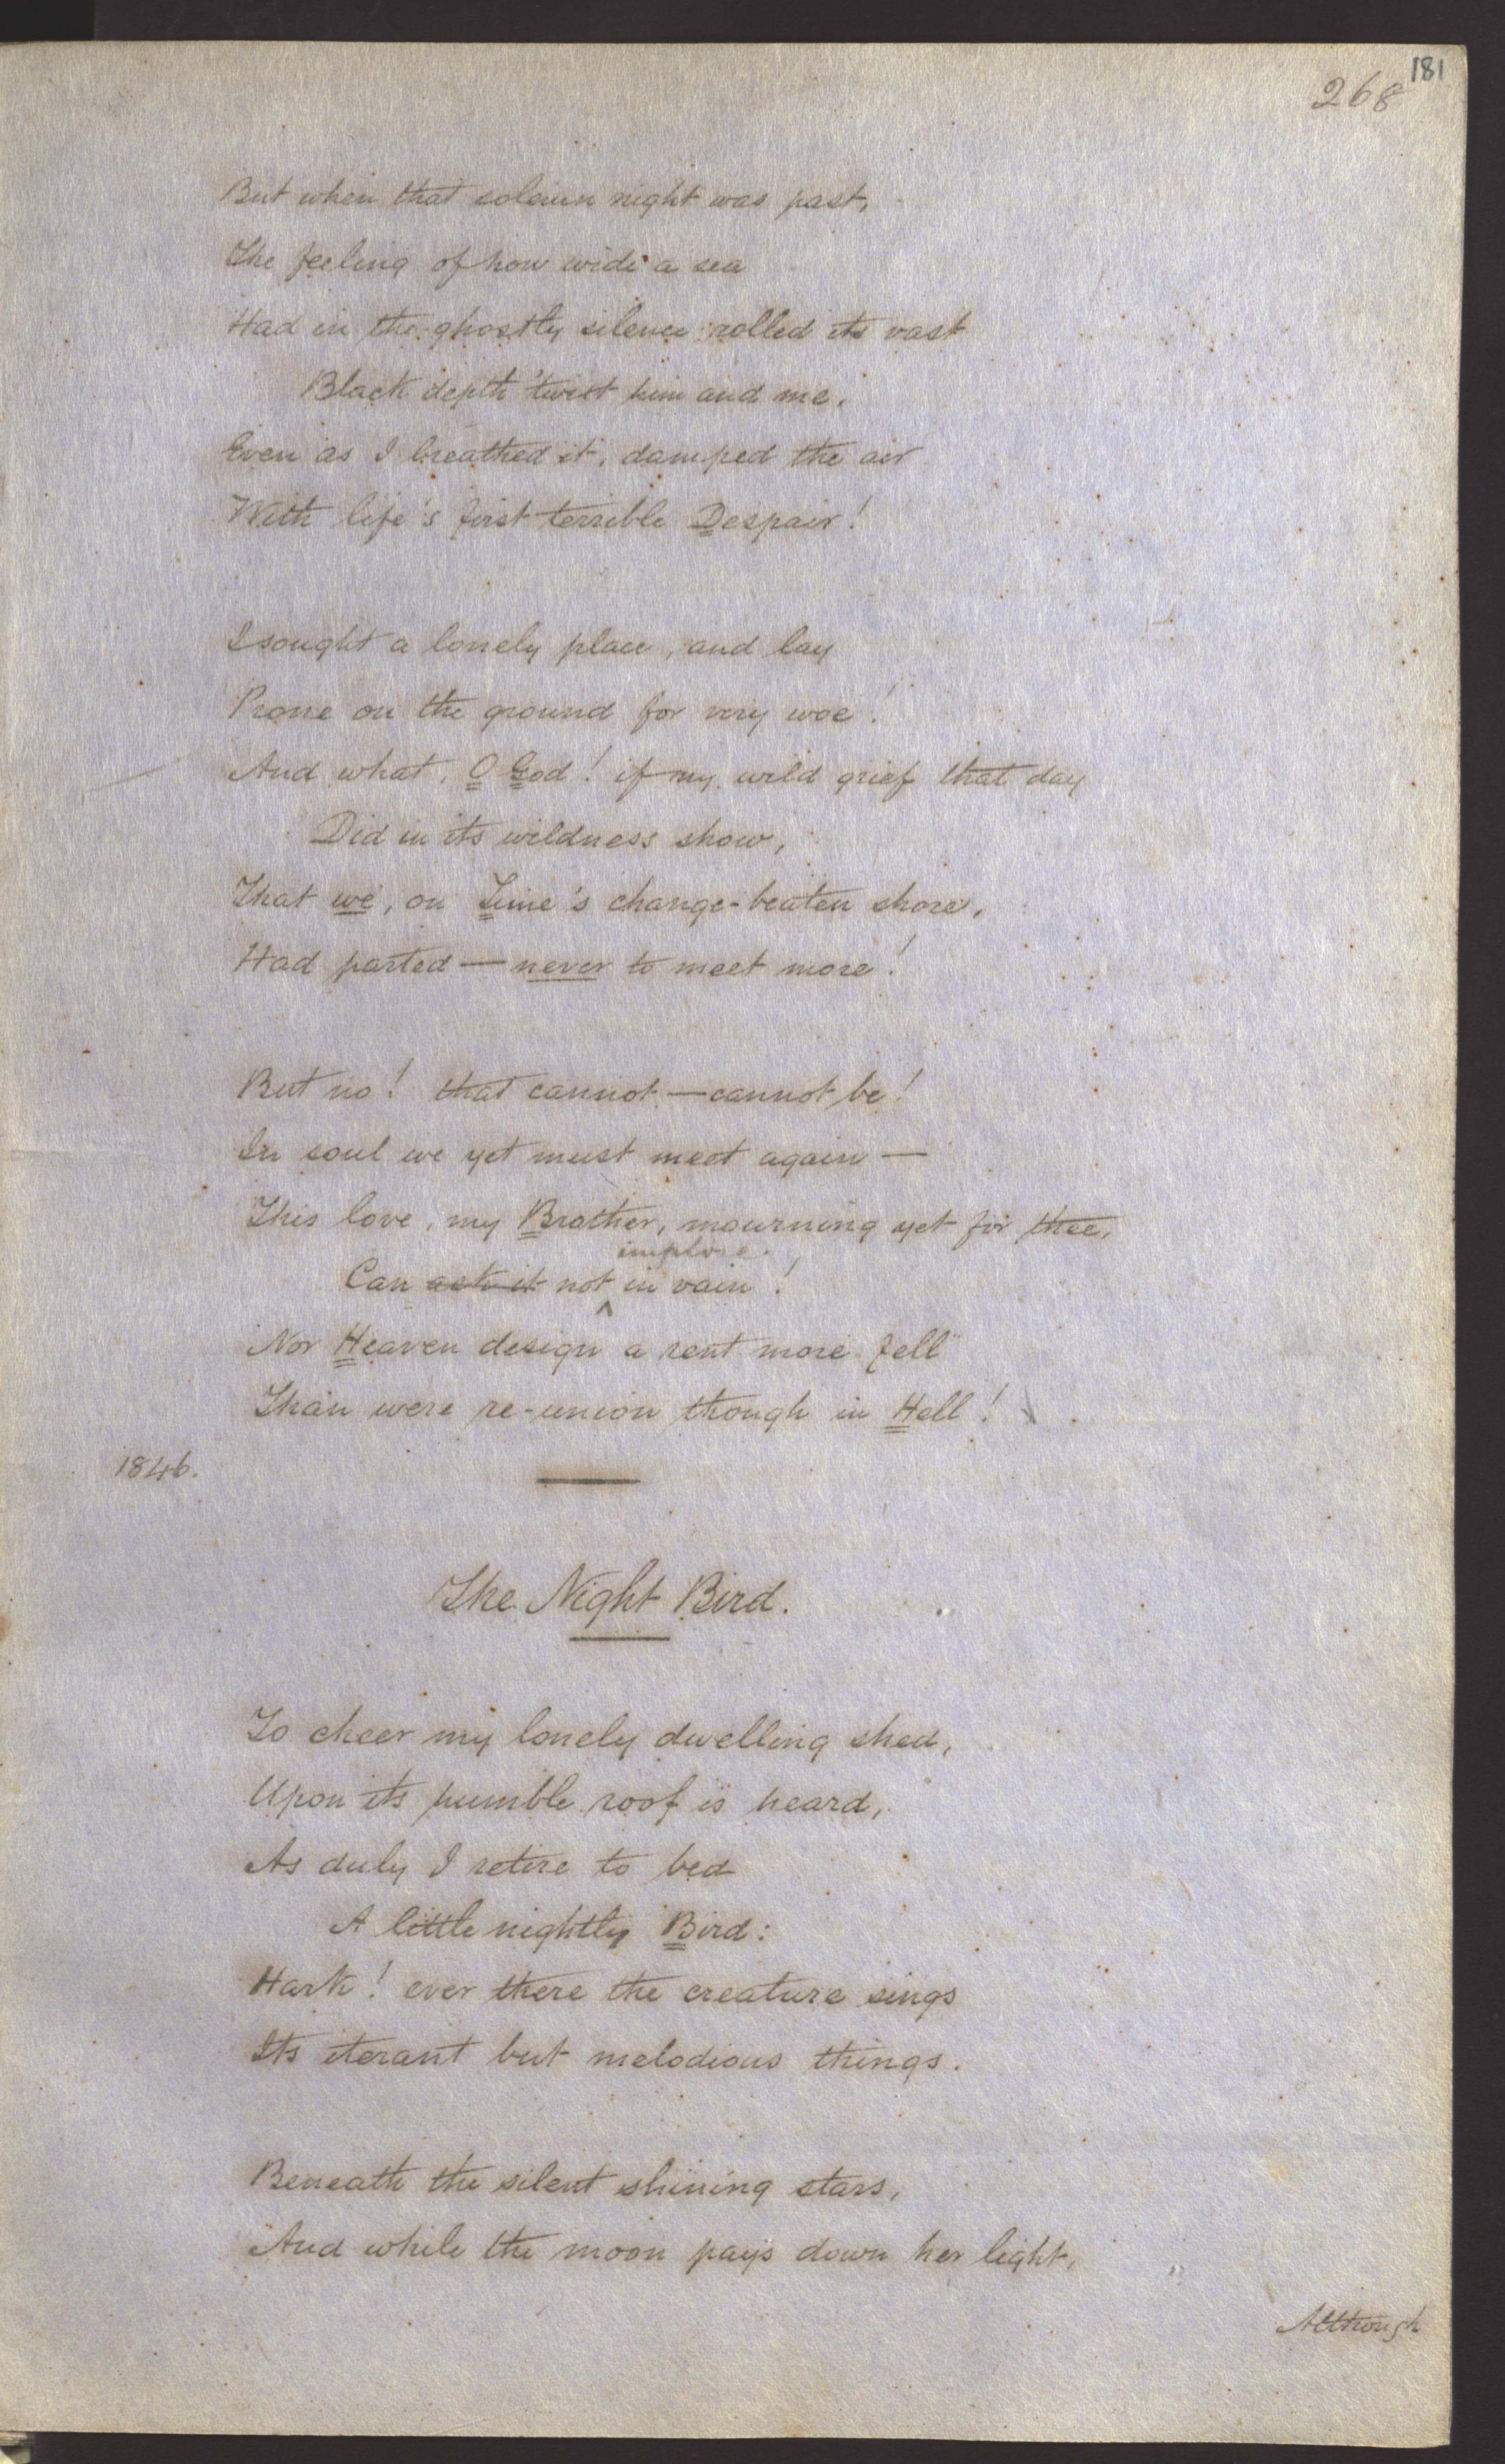 181
268
But when that solemn night was past,
The feeling of how wide a sea
Had in the ghostly silence rolled its vast
Black depth 'twixt him and me,
Even as I breathed it, damped the air
With life's first terrible Despair!
I sought a lonely place, and lay
Prone on the ground for very woe!
And what, O God! if my wild grief that day
Did in its wildness show,
That we, on Time's change-beaten shore,
Had parted — never to meet more!
But no! that cannot — cannot be!
In soul we yet must meet again —
This love, my Brother, mourning yet for thee,
implore
Can ask it not ^ in vain!
Nor Heaven design a rent more fell
Than were re-union though in Hell!
1846.
The Night Bird.
To cheer my lonely dwelling shed,
Upon its humble roof is heard,
As duly I retire to bed
A little nightly Bird:
Hark! ever there the creature sings
Its iterant but melodious things.
Beneath the silent shining stars,
And while the moon pays down her light,
Although